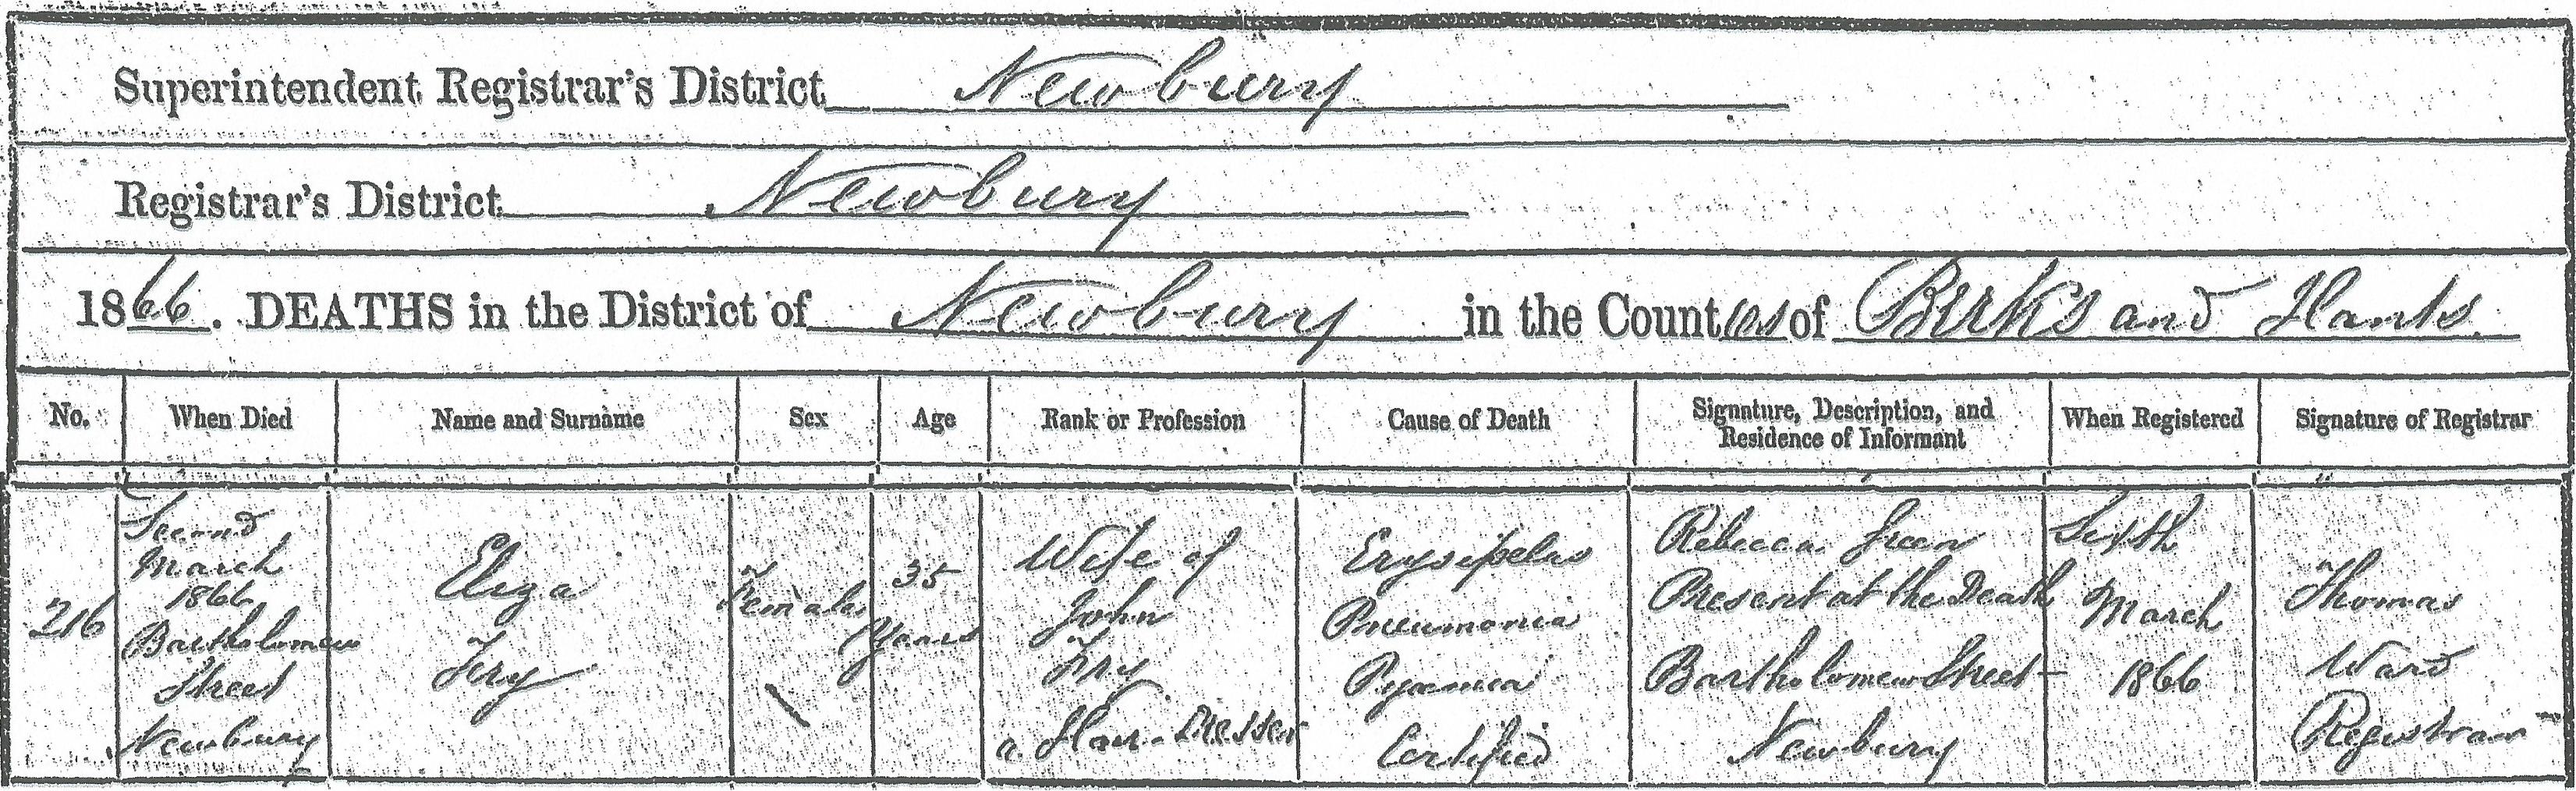 Superintendent Registrar's District Newbury
Registrar's District Newbury
1866. DEATHS in the District of Newbury in the Counties of Berks and Hants.
No.
When Died
Name and Surname
Sex
Age
Rank or Profession
Cause of Death
Signature, Description, and
Residence of Informant
When Registered
Signature of Registrar
216
Second
March
1866
Bartholomew
Street
Newbury
Eliza
Fry
Female
35
Years
Wife of
John
Fry
a Hair-Dresser
Erysipelas
Pneumonia
Pyaemia
Certified
Rebecca Green
Present at the Death
Bartholomew Street
Newbury
Sixth
March
1866
Thomas
Ward
Registrar